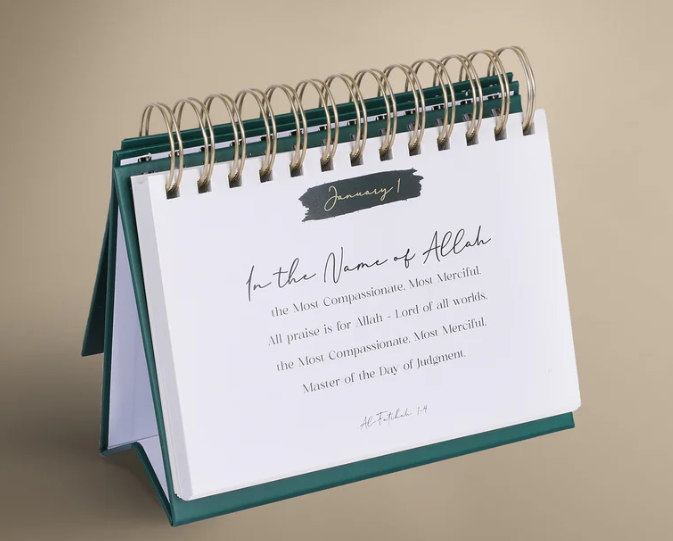 January 1
In the Name of Allah
the Most Compassionate, Most Merciful.
All praise is for Allah - Lord of all worlds,
the Most Compassionate, Most Merciful,
Master of the Day of Judgment.
Al-Fatihah 1:4